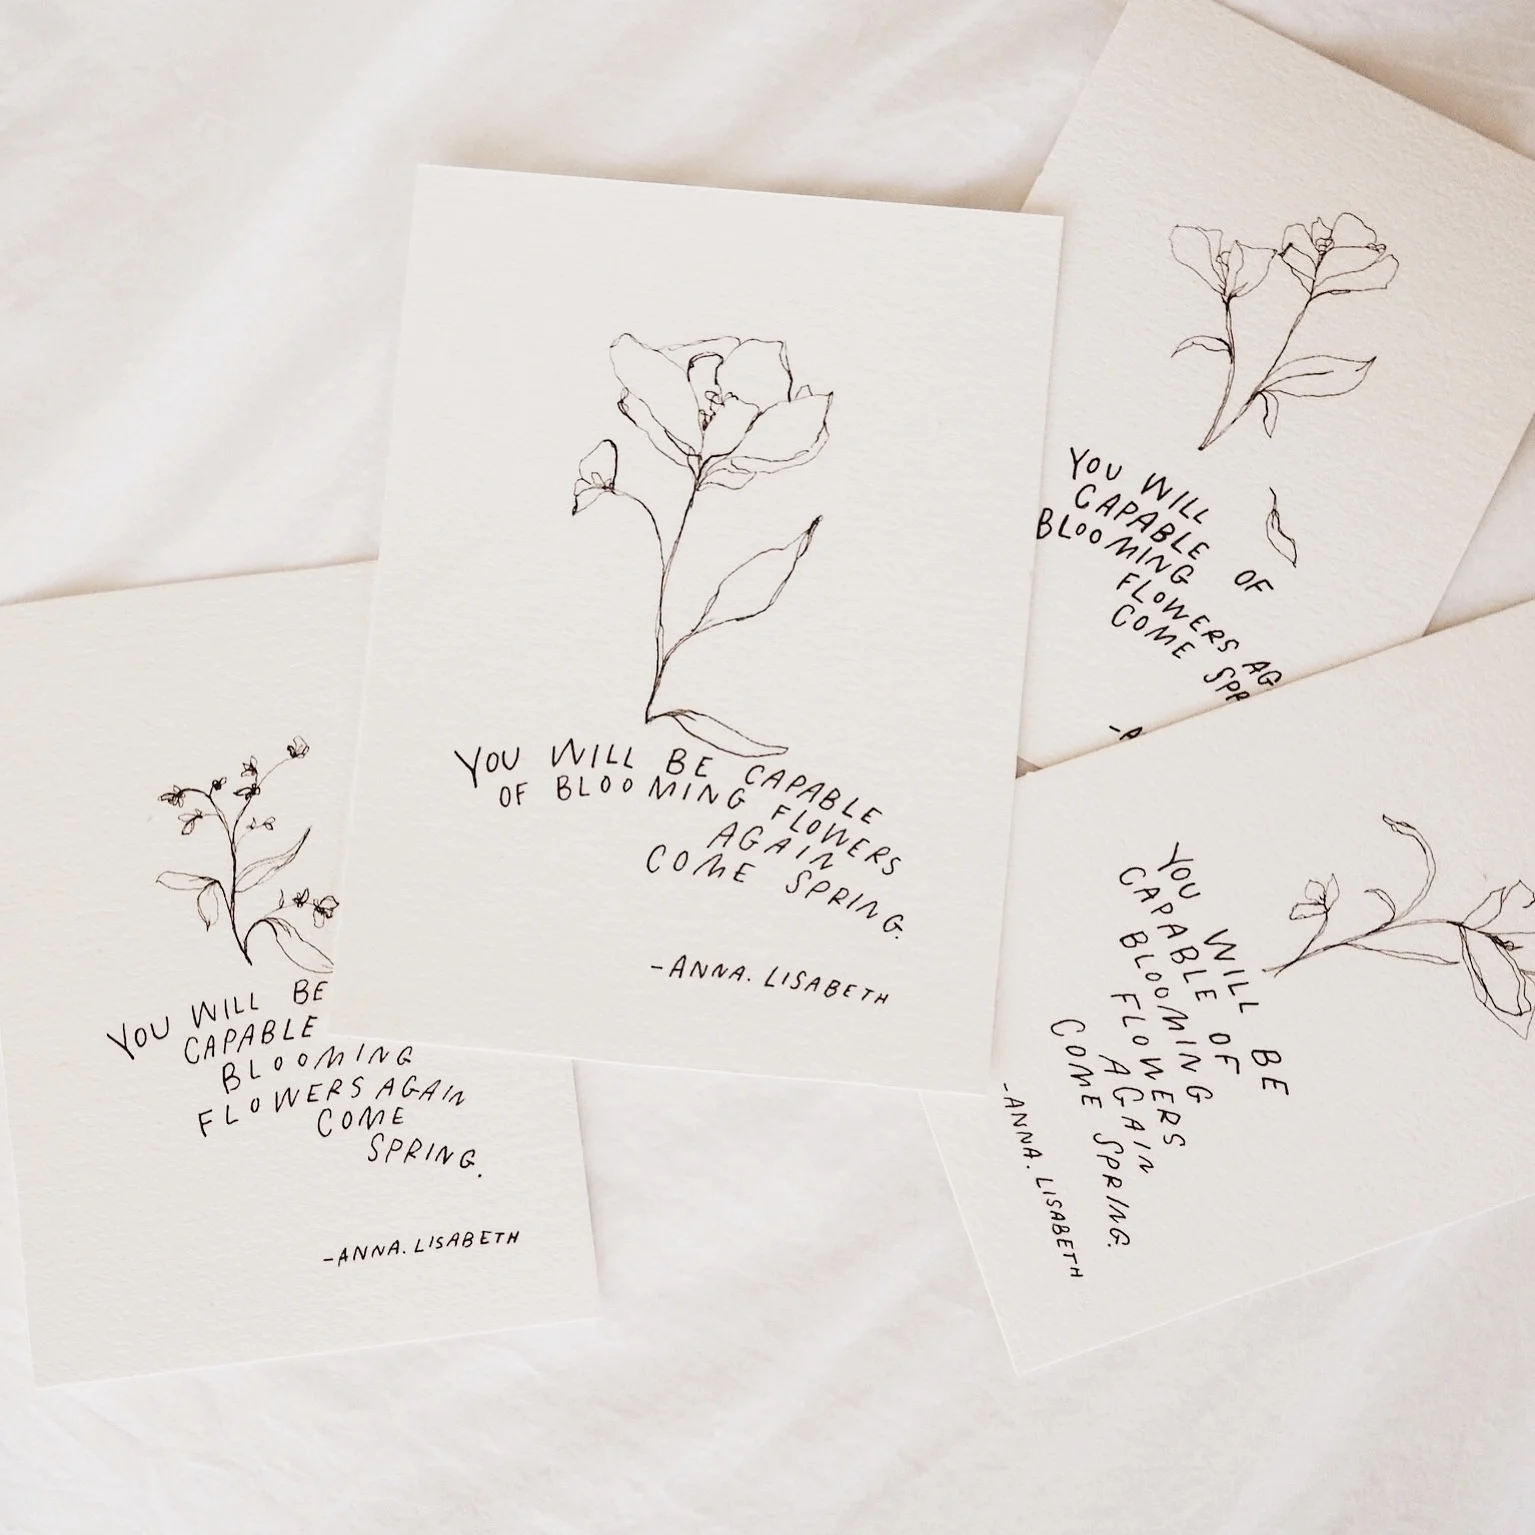 YOU WILL BE CAPABLE
OF BLOOMING FLOWERS
AGAIN
COME SPRING.
-ANNA. LISABETH
YOU WILL
CAPABLE OF
BLOOMING
FLOWERS AG
COME SPR
-A
YOU WILL BE
CAPABLE
BLOOMING
FLOWERS AGAIN
COME
SPRING.
-ANNA. LISABETH
YOU WILL BE
CAPABLE OF
BLOOMING
FLOWERS
AGAIN
COME SPRING.
-ANNA. LISABETH